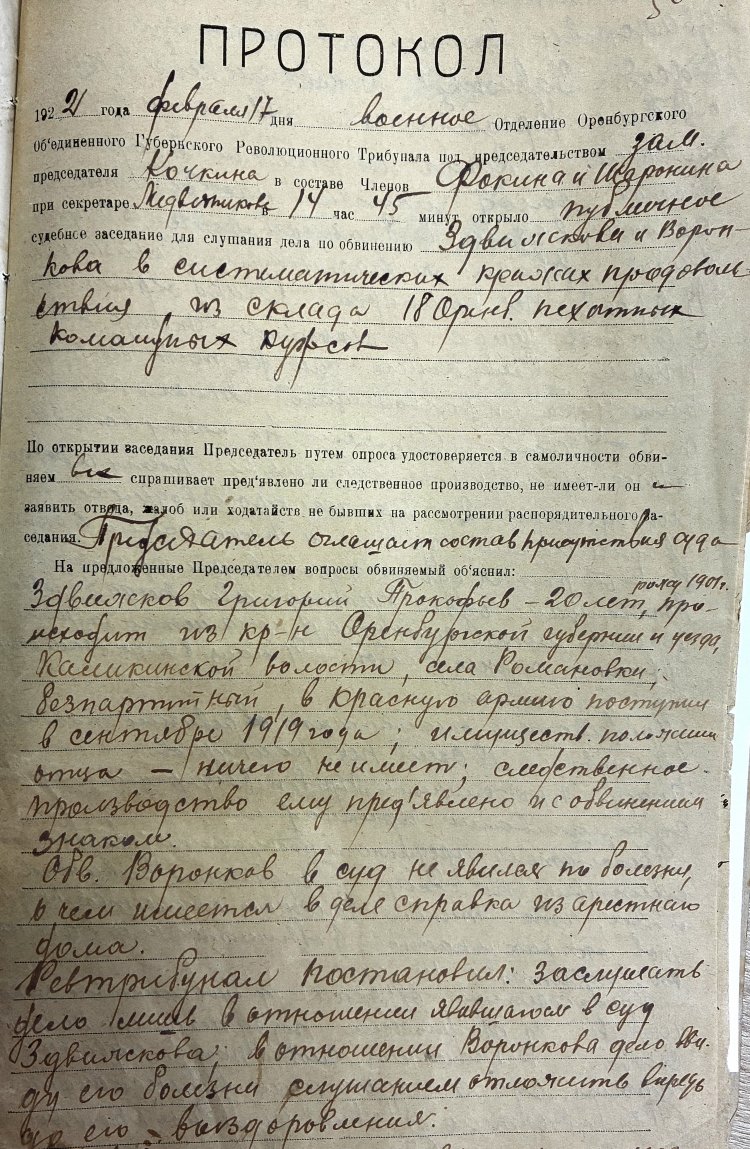 ПРОТОКОЛ
1921 года февраля 17 дня военное Отделение Оренбургского
Об'единенного Губернского Революционного Трибунала под председательством зам.
председателя Кочкина в составе Членов Фокина и Шаронина
при секретаре Медвежникове в 14 час 45 минут открыло публичное
судебное заседание для слушания дела по обвинению Здвижкова и Ворон-
кова в систематических кражах продоволь-
ствия из склада 18 Оренб. пехотных
командных курсов
По открытии заседания Председатель путем опроса удостоверяется в самоличности обви-
няем спрашивает пред'явлено ли следственное производство, не имеет-ли он
заявить отвода, жалоб или ходатайств не бывших на рассмотрении распорядительного за-
седания. Председатель оглашает состав присутствия суда
На предложенные Председателем вопросы обвиняемый об'яснил:
рожд 1901 г.
Здвижков Григорий Прокофьев – 20 лет, про-
исходит из кр-н Оренбургской губернии и уезда,
волости, села Романовки,
безпартийный, в красную армию поступил
в сентябре 1919 года; имуществ. положение
отца – ничего не имеет; следственное
производство ему пред'явлено и с обвинением
знаком.
Обв. Воронков в суд не явился по болезни,
о чем имеется в деле справка из арестнаго
дома.
Ревтрибунал постановил: заслушать
дело лишь в отношении явившагося в суд
Здвижкова; в отношении Воронкова дело вви-
ду его болезни слушанием отложить впредь
до его выздоровления.